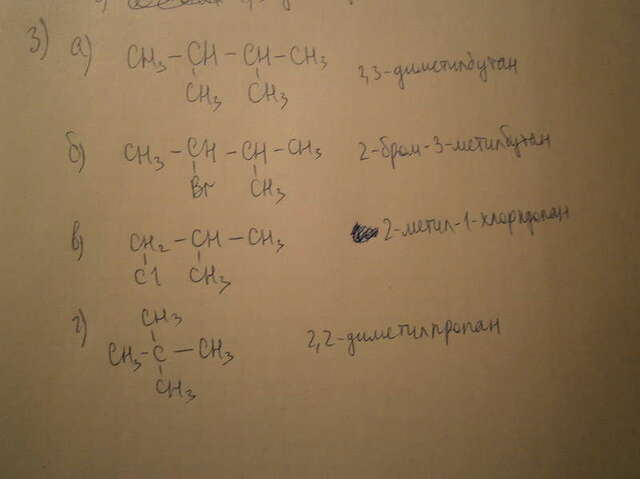 3) а) CH3 – CH – CH – CH3
CH3 CH3
2,3-диметилбутан
б) CH3 – CH – CH – CH3 2-бром-3-метилбутан
Br CH3
в) CH2 – CH – CH3 2-метил-1-хлорпропан
Cl CH3
г) CH3
CH3 – C – CH3 2,2-диметилпропан
CH3